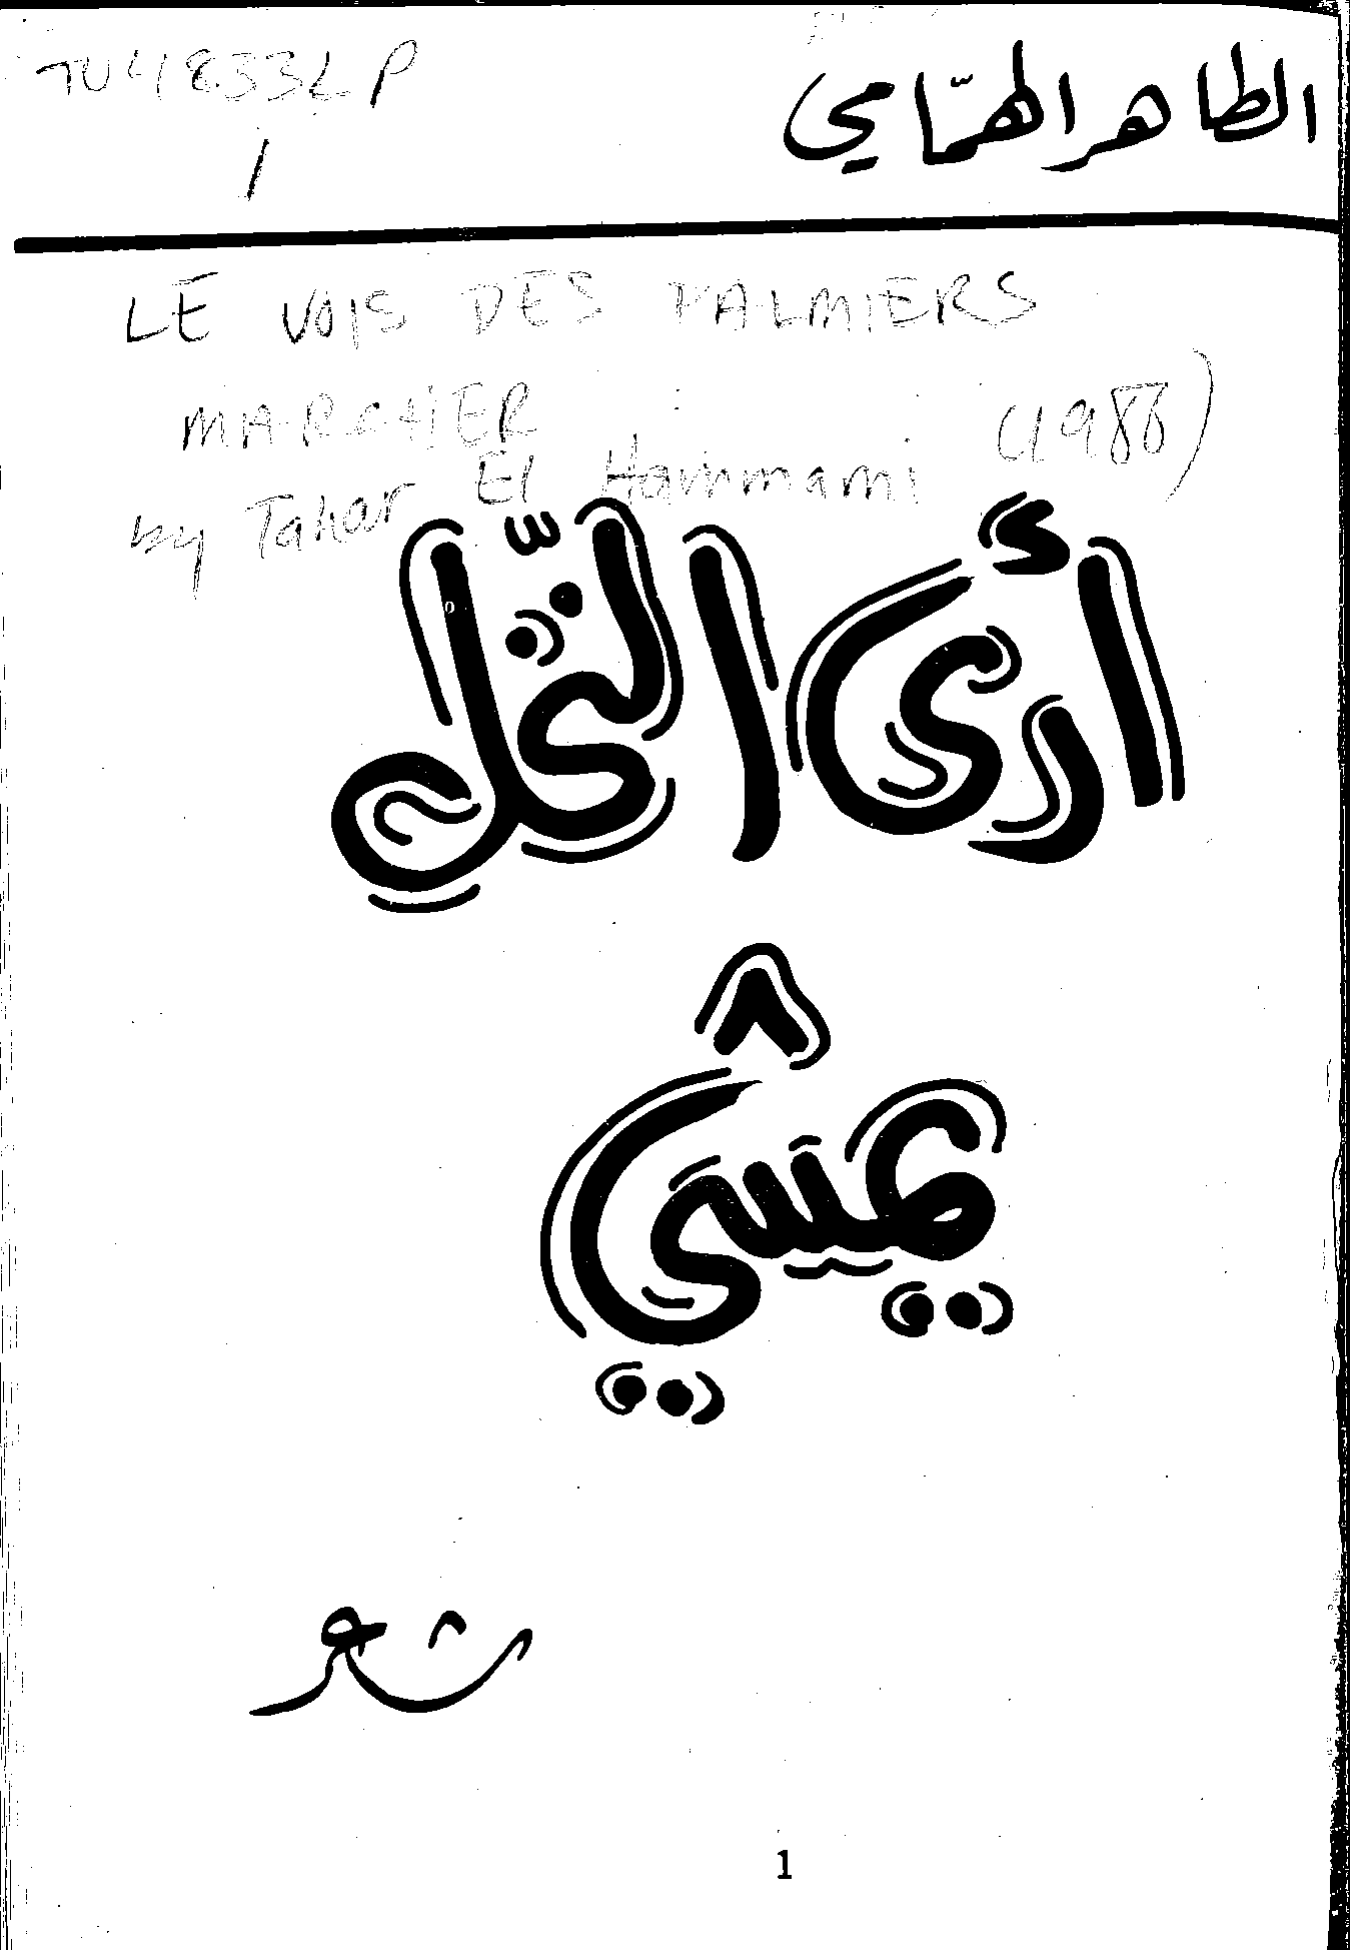 TU4833LP
1
الطاهر الهمّامي
LE VOIS DES PALMIERS
MARCHER (1986)
by Tahar El Hammami
أرى النّخل
يمشي
شعر
1